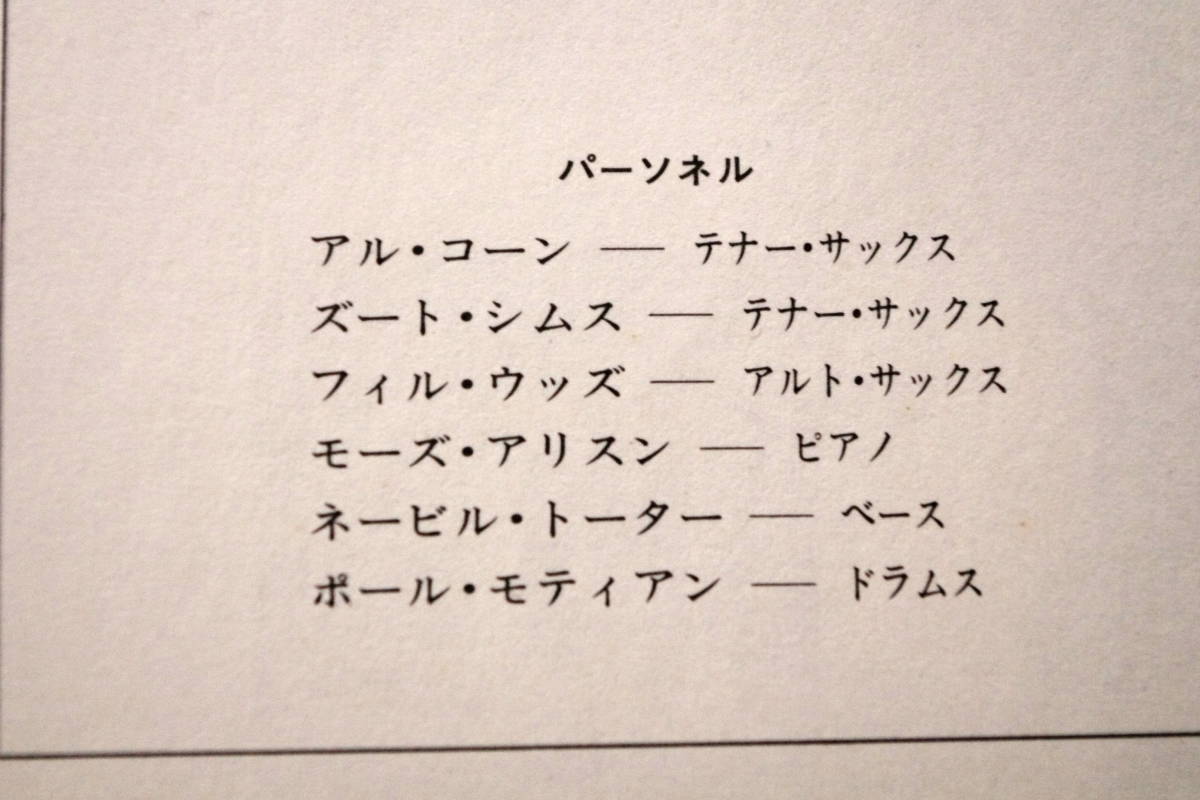 パーソネル
アル・コーン —— テナー・サックス
ズート・シムス —— テナー・サックス
フィル・ウッズ —— アルト・サックス
モーズ・アリスン —— ピアノ
ネービル・トーター —— ベース
ポール・モティアン —— ドラムス